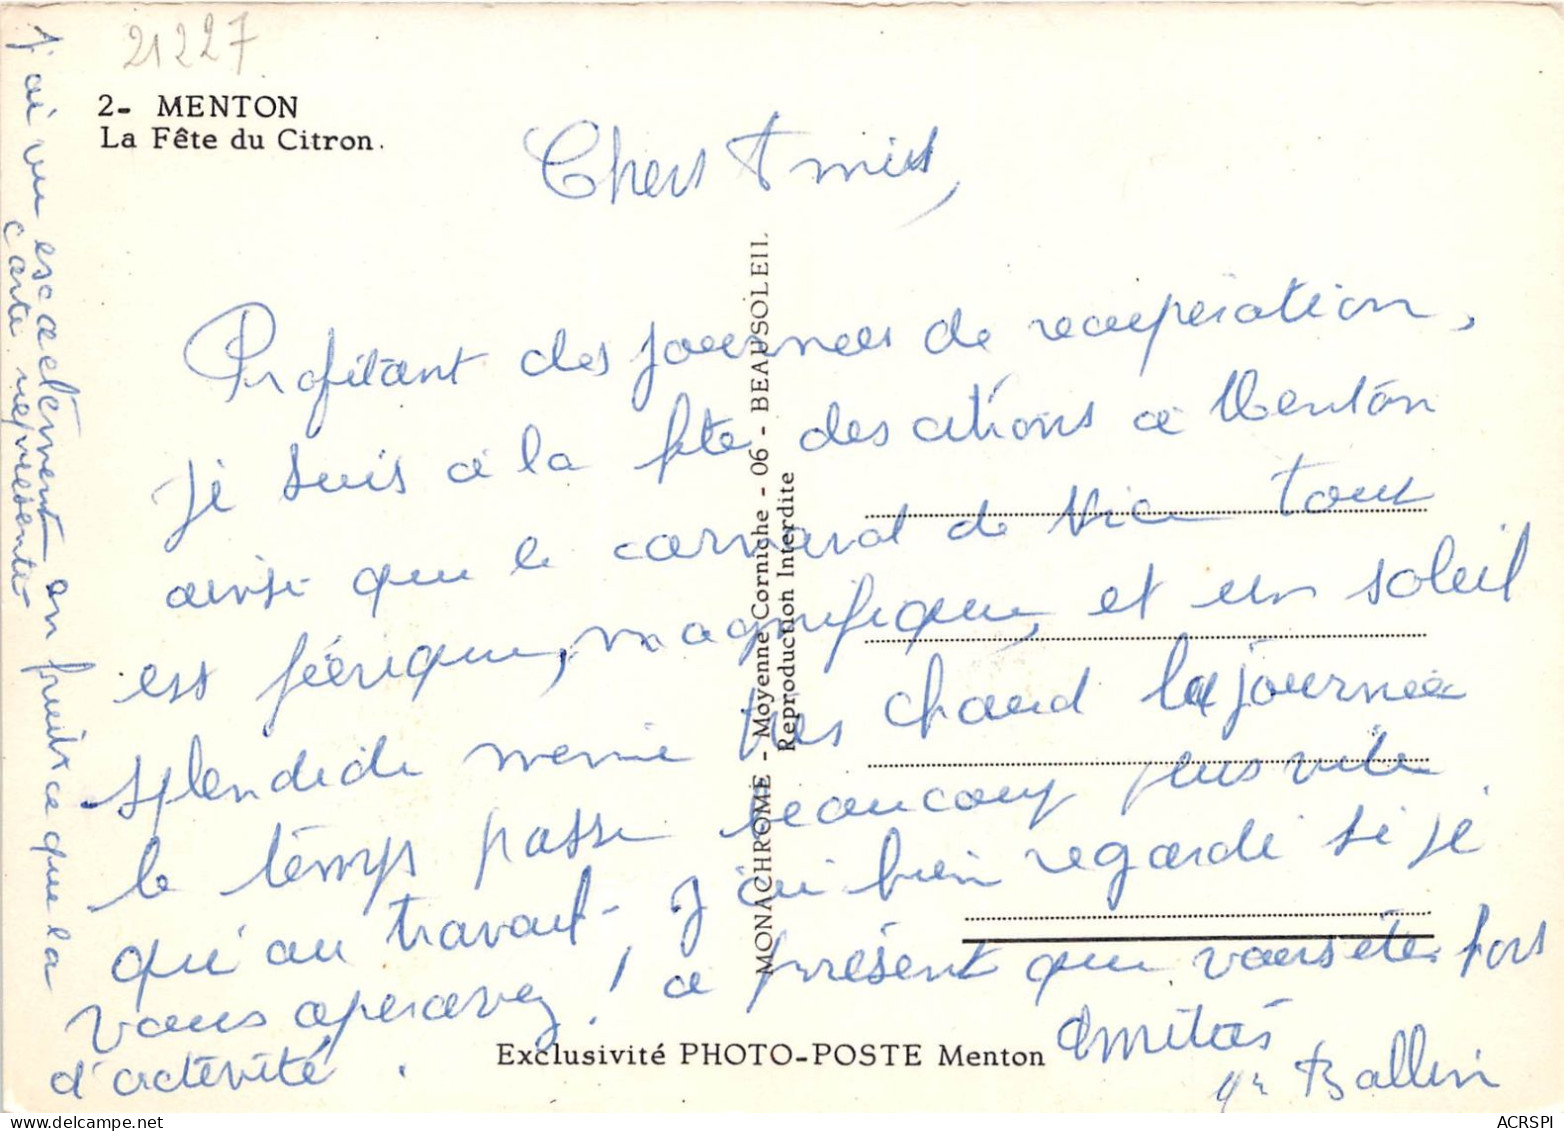 21227
2- MENTON
La Fête du Citron.
Chers Amis,
Profitant des journees de recupération,
je suis a la fête des citrons a Menton
ainsi que le carnaval de Nice tout
est féerique, magnifique, et un soleil
splendide meme tres chaud la journee
le temps passe beaucoup plus vite
qu'au travail, j'ai bien regarde si je
vous apercevez! a présent que vous ête hors
d'activité.
Amitiés
Ballin
J'ai vu exactement en fruits ce que la
carte represente
MONACHROME - Moyenne Corniche - 06 - BEAUSOLEIL
Reproduction Interdite
Exclusivité PHOTO-POSTE Menton
ACRSPI